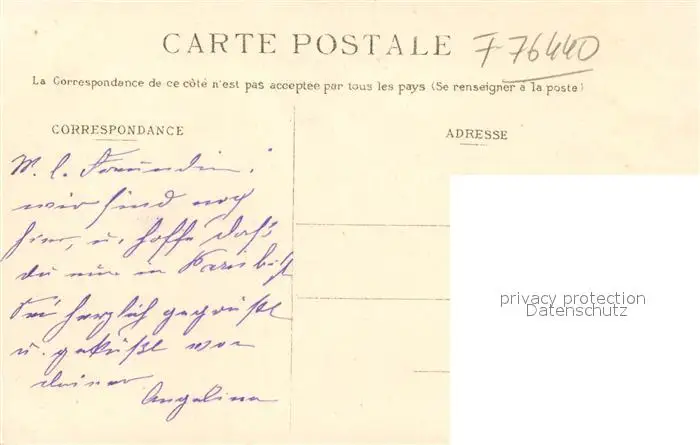 CARTE POSTALE F 76440
La Correspondance de ce côté n'est pas acceptée par tous les pays (Se renseigner à la poste)
CORRESPONDANCE
ADRESSE
M. l. Freundin!
wir sind noch
hier, u. hoffe daß
du nun in Paris bist
Sei herzlich gegrüßt
u. geküßt von
deiner
Angelina
privacy protection
Datenschutz